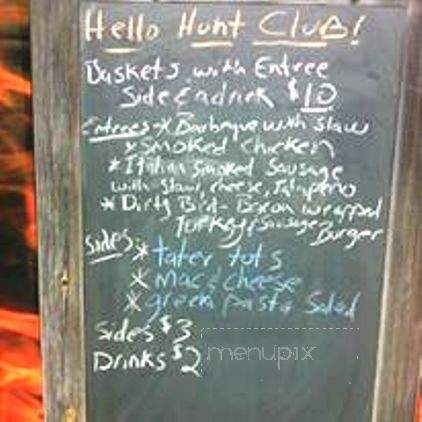 Hello Hunt Club!
Baskets with Entree
Side & a drink $10
Entrees - * Barbeque with slaw
* Smoked Chicken
* Italian Smoked Sausage
with slaw, cheese, Jalapeno
* Dirty Bird - Bacon wrapped
Turkey & Sausage Burger
Sides * tater tots
* Mac & cheese
* green pasta Salad
Sides $3
Drinks $2
menupix